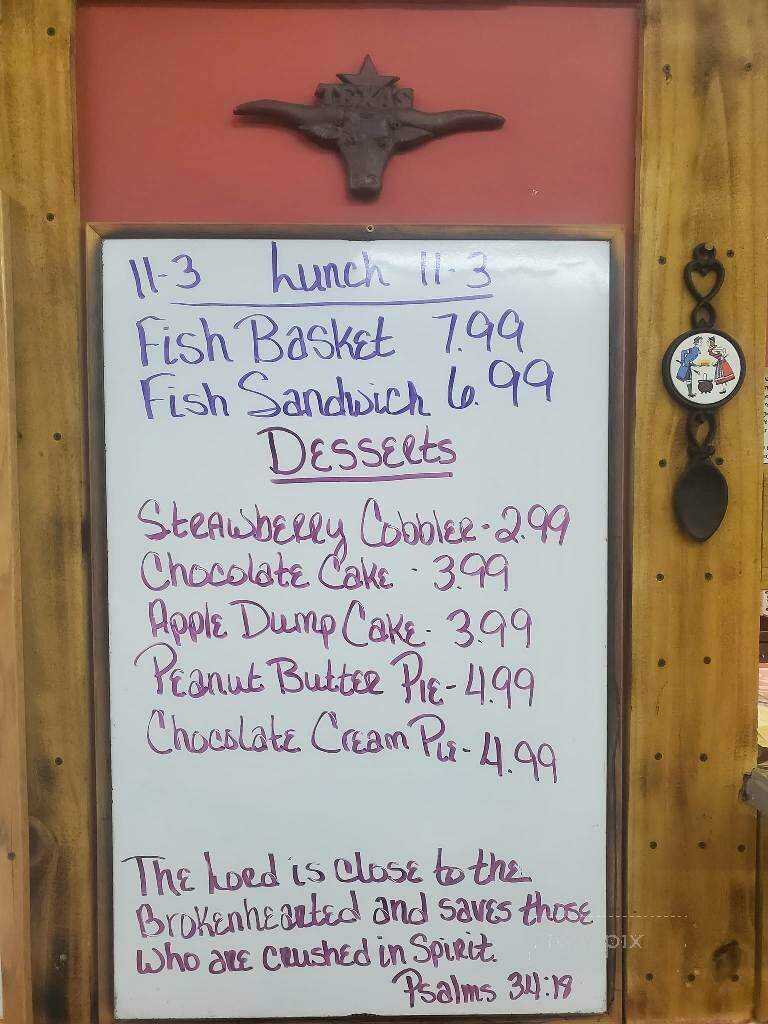 TEXAS
11-3 Lunch 11-3
Fish Basket 7.99
Fish Sandwich 6.99
Desserts
Strawberry Cobbler - 2.99
Chocolate Cake - 3.99
Apple Dump Cake - 3.99
Peanut Butter Pie - 4.99
Chocolate Cream Pie - 4.99
The Lord is close to the
Brokenhearted and saves those
who are crushed in Spirit.
Psalms 34:18